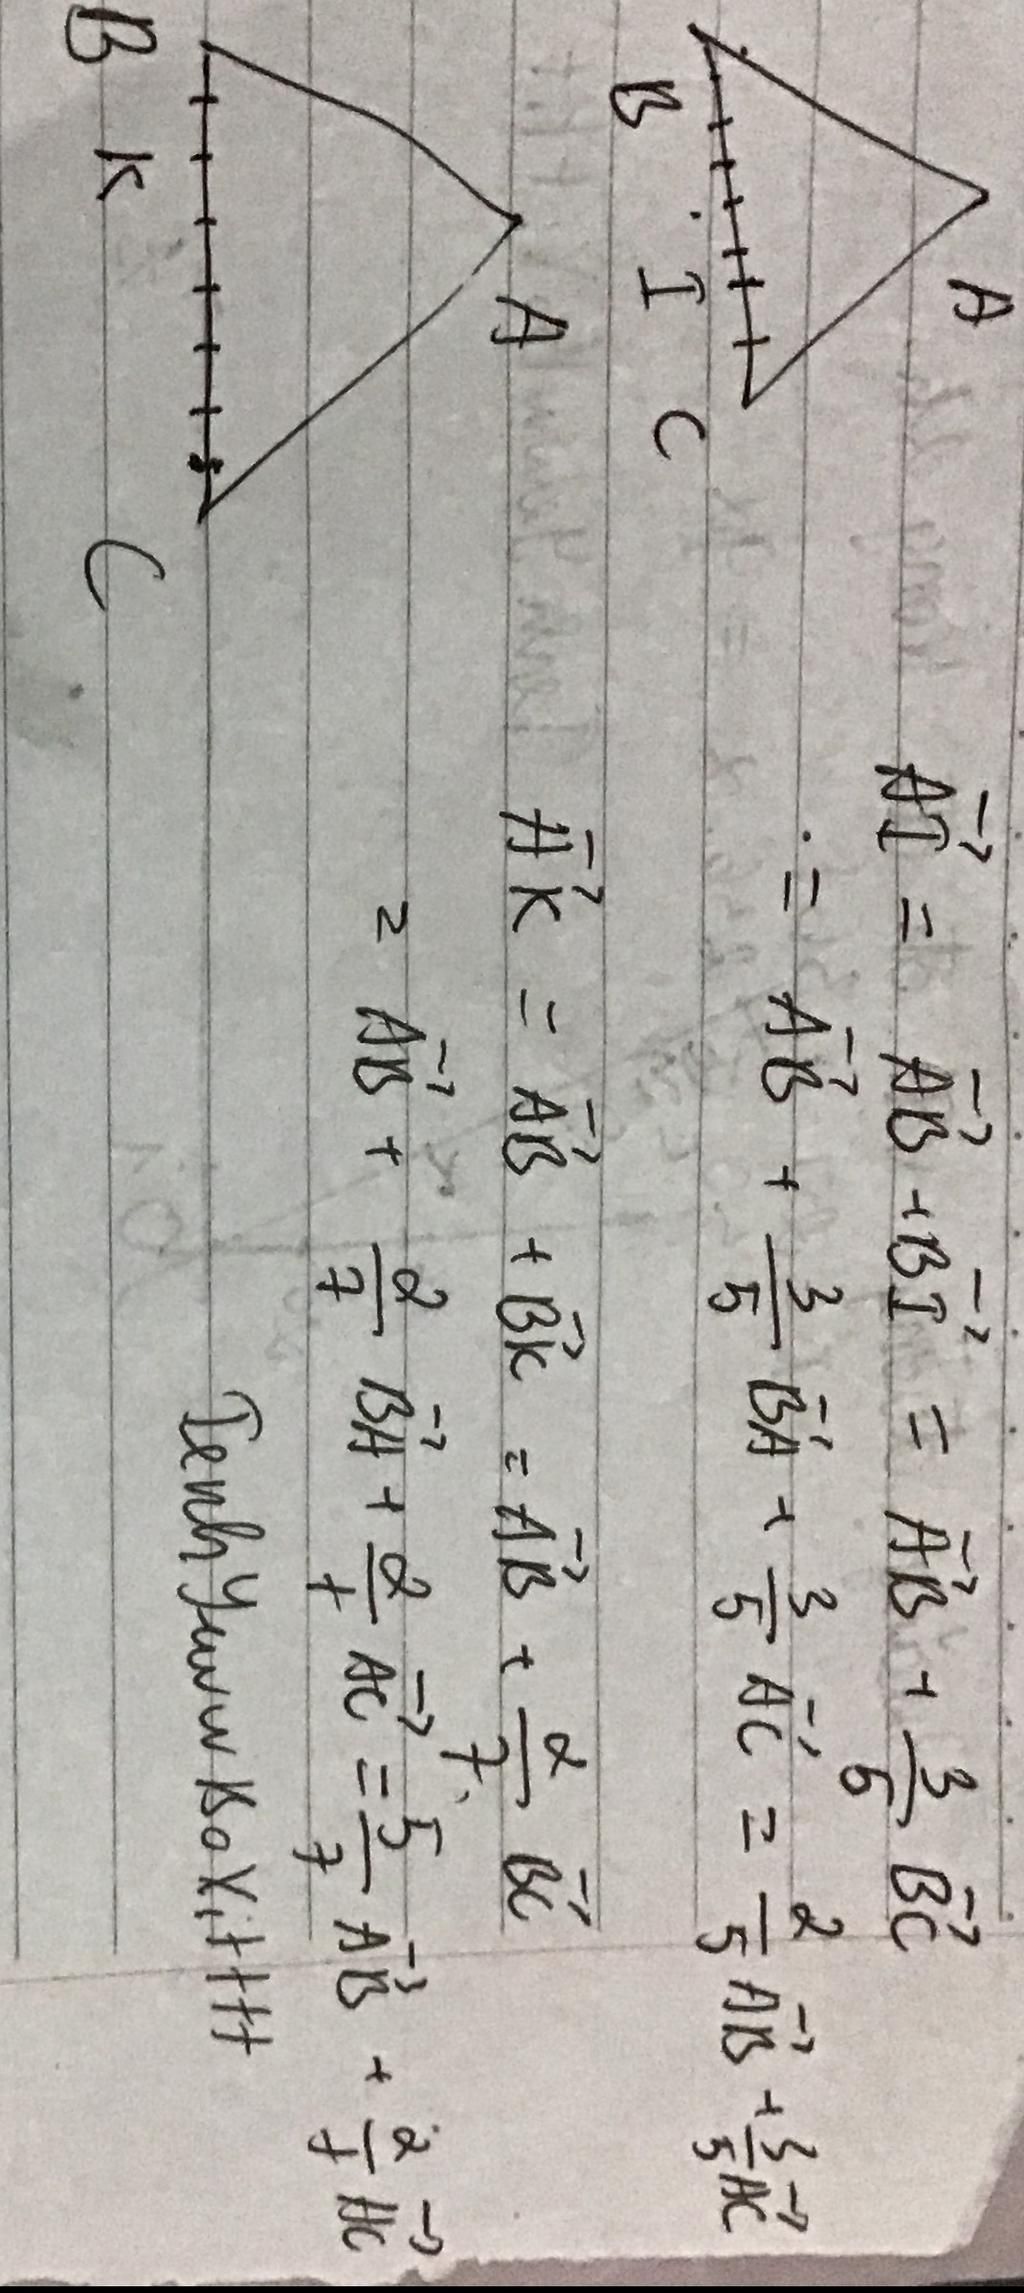 A
B I C
A
B K C
A⃗I = A⃗B + B⃗I = A⃗B + 3/5 B⃗C
= A⃗B + 3/5 B⃗A + 3/5 A⃗C = 2/5 A⃗B + 3/5 A⃗C
A⃗K = A⃗B + B⃗K = A⃗B + 2/7 B⃗C
= A⃗B + 2/7 B⃗A + 2/7 A⃗C = 5/7 A⃗B + 2/7 A⃗C